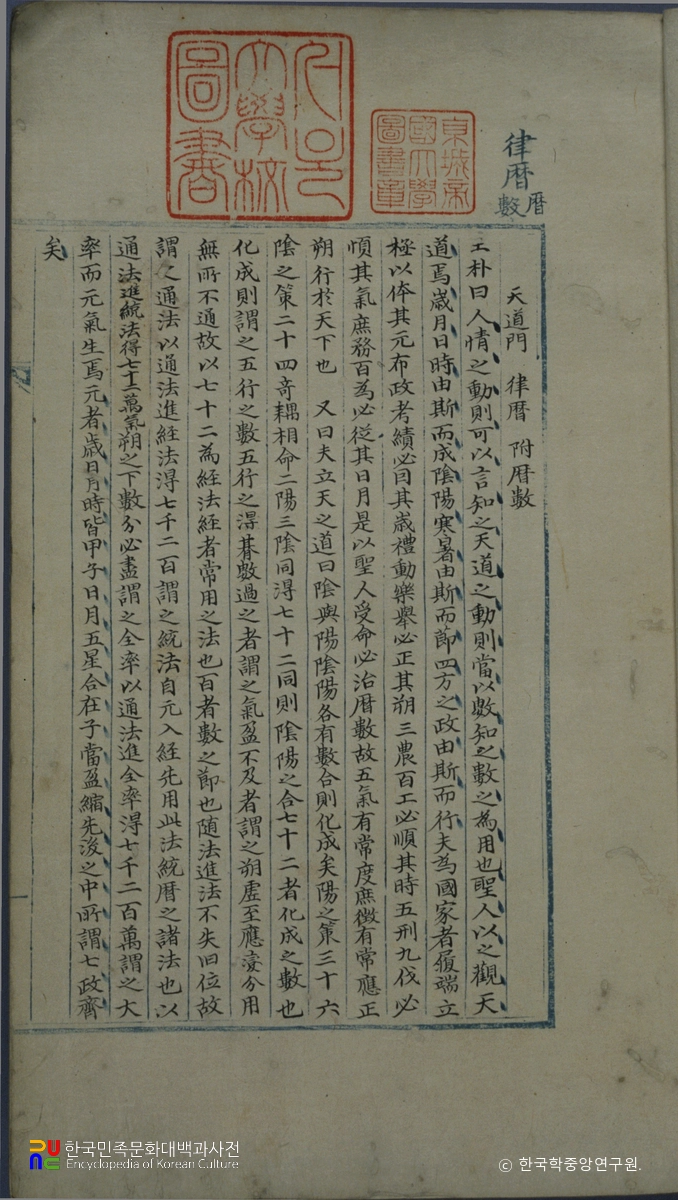 律曆
曆數
京城帝國大學圖書章
서울大學校圖書
天道門 律曆 附曆數
王朴曰人情之動則可以言知之天道之動則當以數知之數之為用也聖人以之觀天
道焉歲月日時由斯而成陰陽寒暑由斯而節四方之政由斯而行夫為國家者履端立
極以体其元布政考績必因其歲禮動樂舉必正其朔三農百工必順其時五刑九伐必
順其氣庶務百為必從其日月是以聖人受命必治曆數故五氣有常度庶徵有常應正
朔行於天下也 又曰夫立天之道曰陰與陽陰陽各有數合則化成矣陽之策三十六
陰之策二十四奇耦相命二陽三陰同淂七十二同則陰陽之合七十二者化成之數也
化成則謂之五行之數五行之淂朞數過之者謂之氣盈不及者謂之朔虛至應变分用
無所不通故以七十二為経法経者常用之法也百者數之節也随法進法不失旧位故
謂之通法以通法進経法淂七千二百謂之統法自元入経先用此法統曆之諸法也以
通法進統法得七十二萬氣朔之下數分必盡謂之全率以通法進全率淂七千二百萬謂之大
率而元氣生焉元者歲日月時皆甲子日月五星合在子當盈縮先後之中所謂七政齊
矣
한국민족문화대백과사전
Encyclopedia of Korean Culture
ⓒ 한국학중앙연구원.